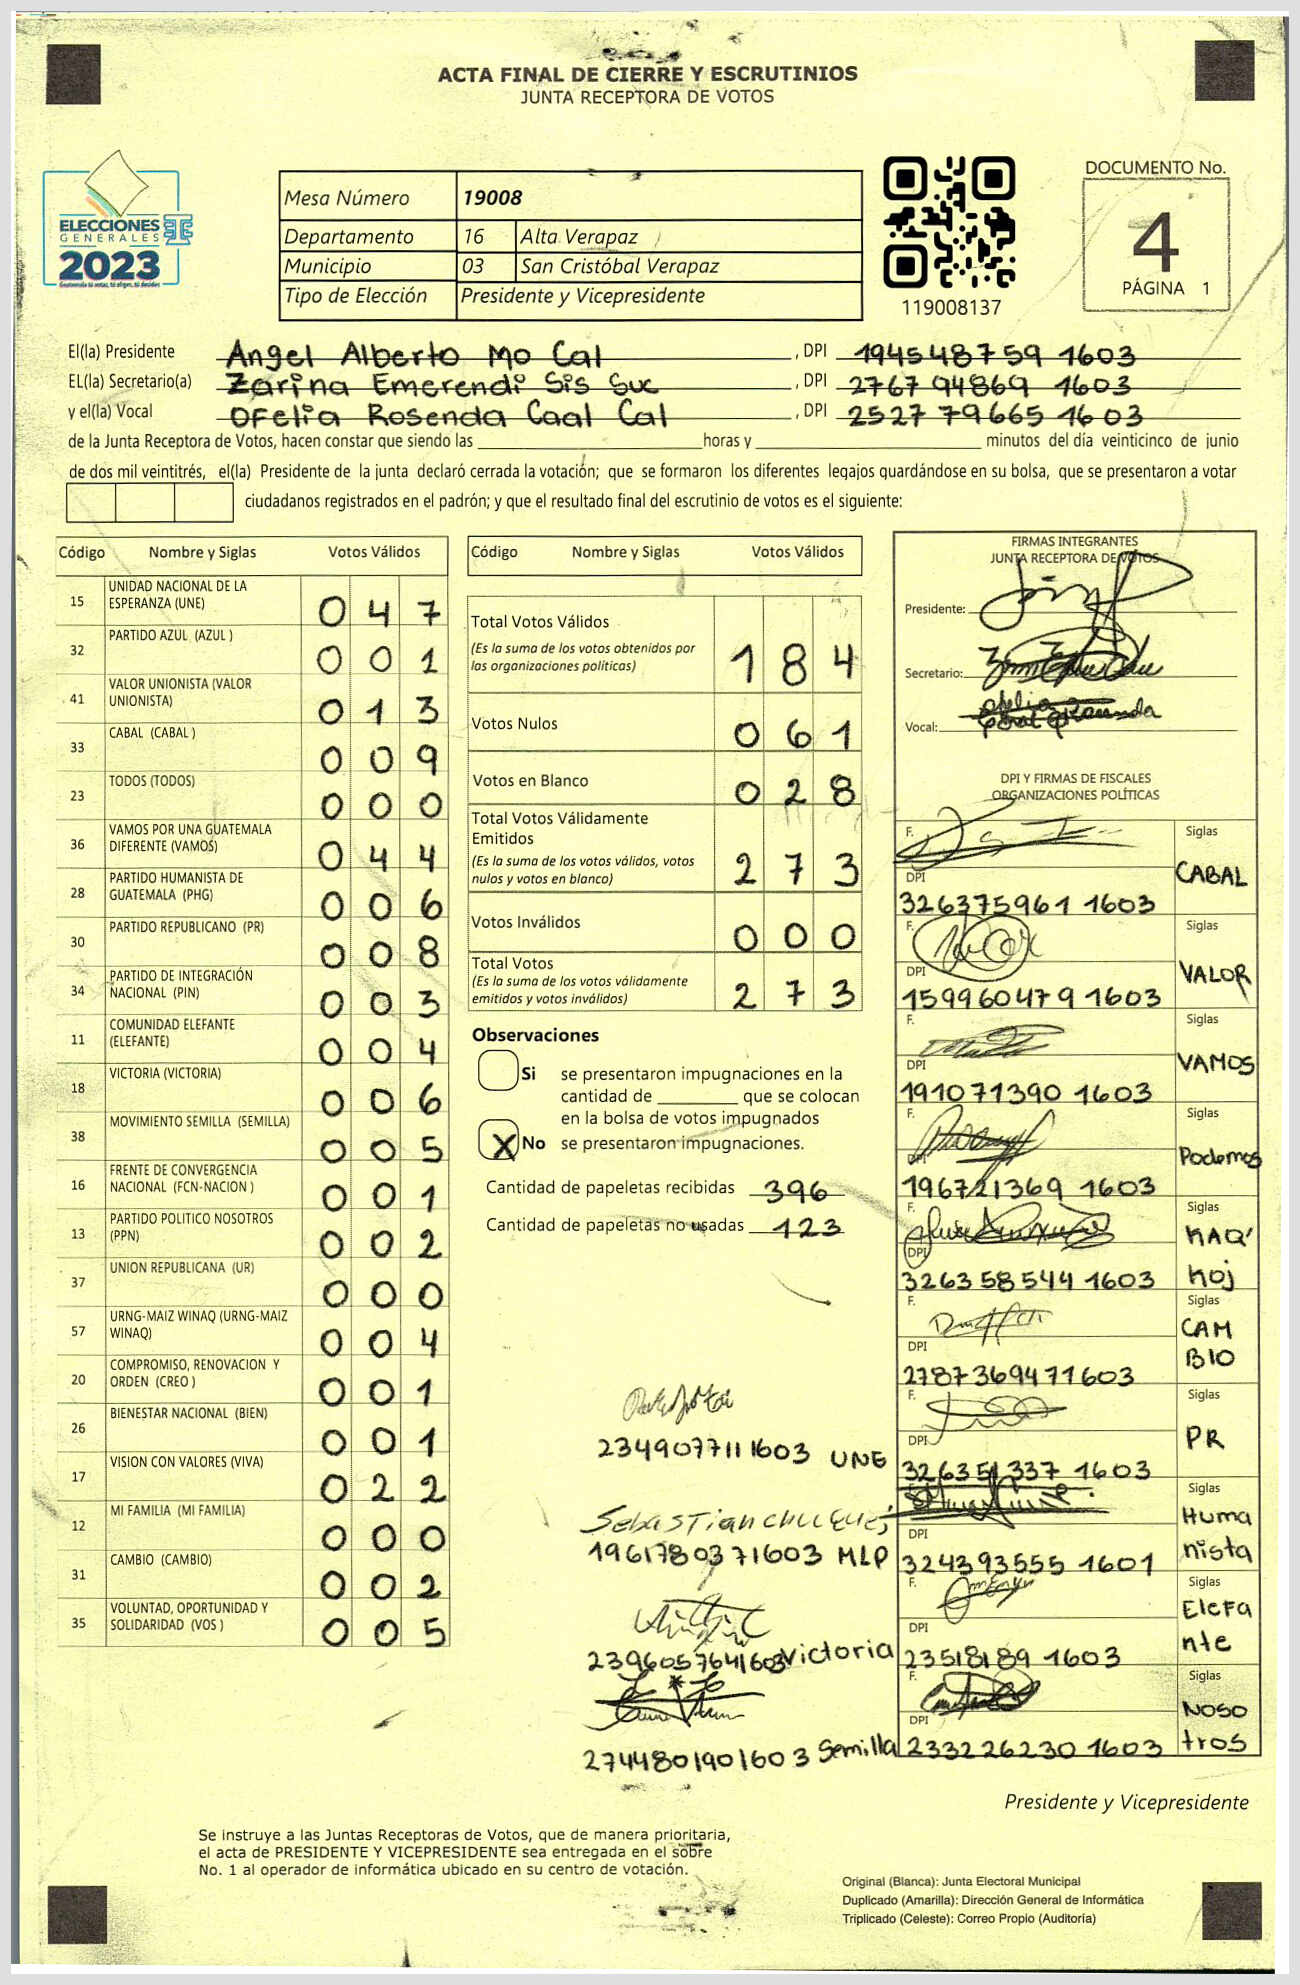 ACTA FINAL DE CIERRE Y ESCRUTINIOS
JUNTA RECEPTORA DE VOTOS
ELECCIONES
GENERALES
2023
Mesa Número 19008
Departamento 16 Alta Verapaz
Municipio 03 San Cristóbal Verapaz
Tipo de Elección Presidente y Vicepresidente
119008137
DOCUMENTO No.
4
PÁGINA 1
El(la) Presidente Angel Alberto Mo Cal , DPI 194548759 1603
EL(la) Secretario(a) Zarina Emerendi Sis Suc , DPI 2767 94869 1603
y el(la) Vocal Ofelia Rosenda Caal Cal , DPI 2527 79665 1603
de la Junta Receptora de Votos, hacen constar que siendo las horas y minutos del día veinticinco de junio
de dos mil veintitrés, el(la) Presidente de la junta declaró cerrada la votación; que se formaron los diferentes legajos quardándose en su bolsa, que se presentaron a votar
ciudadanos registrados en el padrón; y que el resultado final del escrutinio de votos es el siguiente:
Código Nombre y Siglas Votos Válidos
15 UNIDAD NACIONAL DE LA ESPERANZA (UNE) 0 4 7
32 PARTIDO AZUL (AZUL ) 0 0 1
41 VALOR UNIONISTA (VALOR UNIONISTA) 0 1 3
33 CABAL (CABAL ) 0 0 9
23 TODOS (TODOS) 0 0 0
36 VAMOS POR UNA GUATEMALA DIFERENTE (VAMOS) 0 4 4
28 PARTIDO HUMANISTA DE GUATEMALA (PHG) 0 0 6
30 PARTIDO REPUBLICANO (PR) 0 0 8
34 PARTIDO DE INTEGRACIÓN NACIONAL (PIN) 0 0 3
11 COMUNIDAD ELEFANTE (ELEFANTE) 0 0 4
18 VICTORIA (VICTORIA) 0 0 6
38 MOVIMIENTO SEMILLA (SEMILLA) 0 0 5
16 FRENTE DE CONVERGENCIA NACIONAL (FCN-NACION ) 0 0 1
13 PARTIDO POLITICO NOSOTROS (PPN) 0 0 2
37 UNION REPUBLICANA (UR) 0 0 0
57 URNG-MAIZ WINAQ (URNG-MAIZ WINAQ) 0 0 4
20 COMPROMISO, RENOVACION Y ORDEN (CREO ) 0 0 1
26 BIENESTAR NACIONAL (BIEN) 0 0 1
17 VISION CON VALORES (VIVA) 0 2 2
12 MI FAMILIA (MI FAMILIA) 0 0 0
31 CAMBIO (CAMBIO) 0 0 2
35 VOLUNTAD, OPORTUNIDAD Y SOLIDARIDAD (VOS ) 0 0 5
Código Nombre y Siglas Votos Válidos
Total Votos Válidos 1 8 4
(Es la suma de los votos obtenidos por
las organizaciones políticas)
Votos Nulos 0 6 1
Votos en Blanco 0 2 8
Total Votos Válidamente
Emitidos 2 7 3
(Es la suma de los votos válidos, votos
nulos y votos en blanco)
Votos Inválidos 0 0 0
Total Votos 2 7 3
(Es la suma de los votos válidamente
emitidos y votos inválidos)
Observaciones
Si se presentaron impugnaciones en la
cantidad de que se colocan
en la bolsa de votos impugnados
X No se presentaron impugnaciones.
Cantidad de papeletas recibidas 396
Cantidad de papeletas no usadas 123
2349077111603 UNE
1961780371603 MLP
2396057641603 Victoria
2744801901603 Semilla
FIRMAS INTEGRANTES
JUNTA RECEPTORA DE VOTOS
Presidente:
Secretario:
Vocal:
DPI Y FIRMAS DE FISCALES
ORGANIZACIONES POLÍTICAS
F. Siglas
DPI CABAL
326375961 1603
F. Siglas
DPI VALOR
159960479 1603
F. Siglas
DPI VAMOS
191071390 1603
F. Siglas
DPI Podemos
196721369 1603
F. Siglas
DPI KAQ' Koj
326358544 1603
F. Siglas
DPI CAM BIO
2787369471603
F. Siglas
DPI PR
326351337 1603
Siglas
DPI Huma nista
324393555 1601
F. Siglas
DPI Elefa nte
23518189 1603
F. Siglas
DPI NOSO tros
233226230 1603
Presidente y Vicepresidente
Se instruye a las Juntas Receptoras de Votos, que de manera prioritaria,
el acta de PRESIDENTE Y VICEPRESIDENTE sea entregada en el sobre
No. 1 al operador de informática ubicado en su centro de votación.
Original (Blanca): Junta Electoral Municipal
Duplicado (Amarilla): Dirección General de Informática
Triplicado (Celeste): Correo Propio (Auditoría)